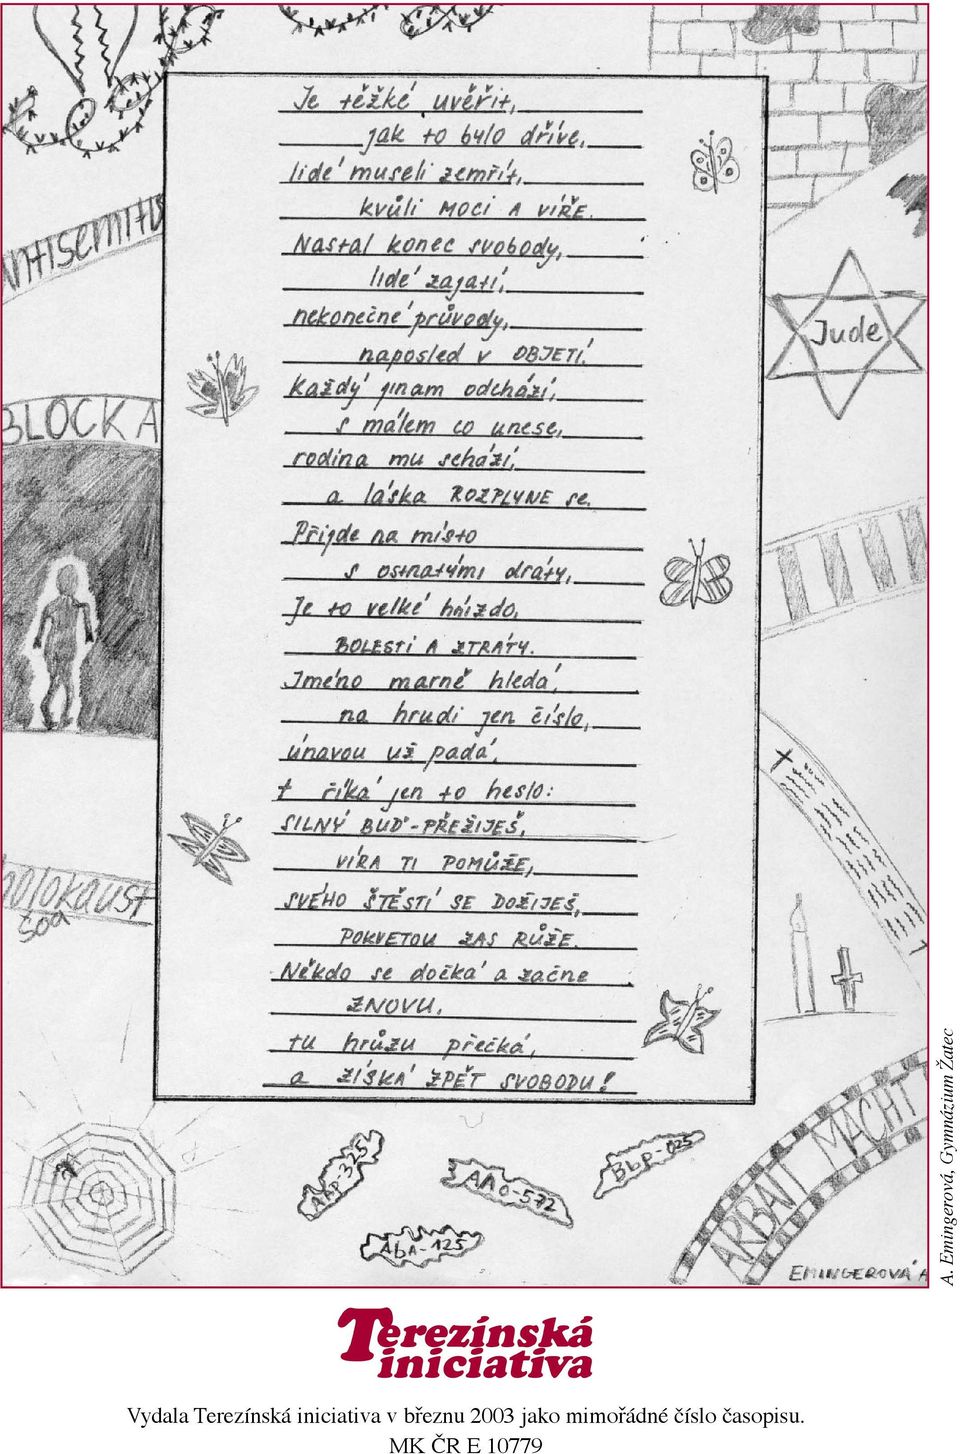 Je těžké uvěřit,
jak to bylo dříve,
lidé museli zemřít,
kvůli MOCI A VÍŘE.
Nastal konec svobody,
lidé zajatí,
nekonečné průvody,
naposled v OBJETÍ.
Každý jinam odchází,
s málem co unese,
rodina mu schází,
a láska ROZPLYNE se.
Přijde na místo
s ostnatými dráty,
Je to velké hnízdo,
BOLESTI A ZTRÁTY.
Jméno marně hledá,
na hrudi jen číslo,
únavou už padá,
říká jen to heslo:
SILNÝ BUĎ-PŘEŽIJEŠ,
VÍRA TI POMŮŽE,
SVÉHO ŠTĚSTÍ SE DOŽIJEŠ,
POKVETOU ZAS RŮŽE.
Někdo se dočká a začne
ZNOVU,
tu hrůzu přečká,
a ZÍSKÁ ZPĚT SVOBODU!
Antisemitis
BLOCKA
holokaust
šoa
Jude
AAP-325
AAo-572
AbA-125
Bbp-025
ARBAIT MACHT
EMINGEROVÁ A
A. Emingerová, Gymnázium Žatec
Terezínská
iniciativa
Vydala Terezínská iniciativa v březnu 2003 jako mimořádné číslo časopisu.
MK ČR E 10779